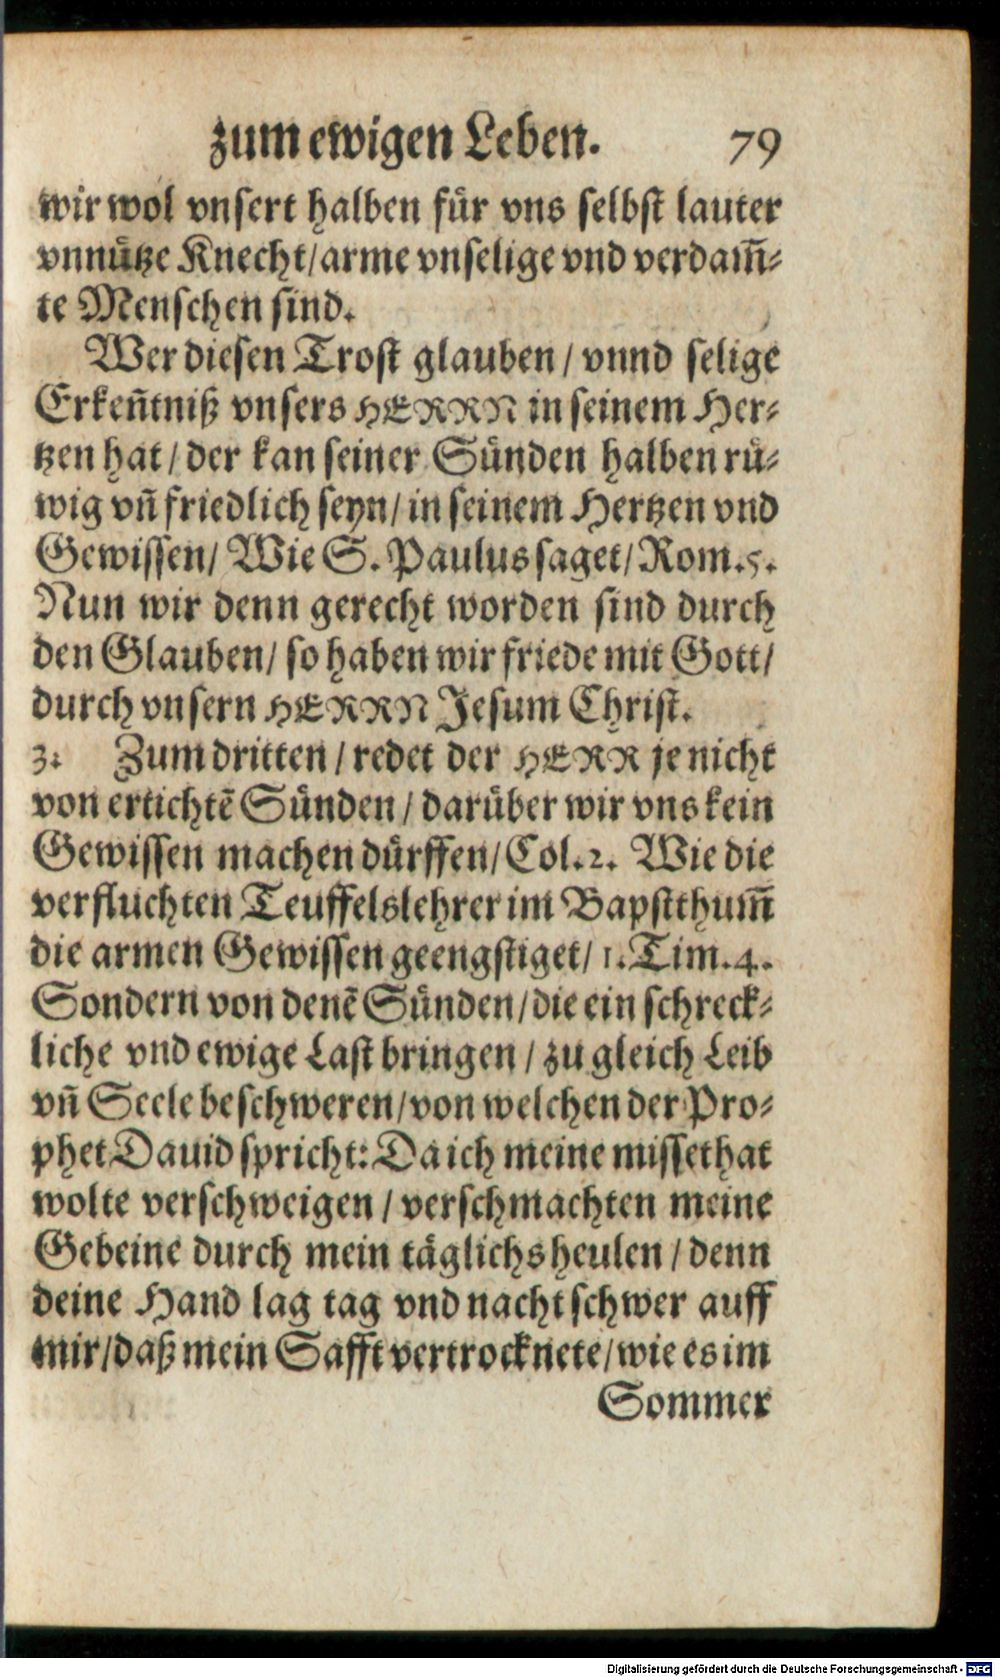 zum ewigen Leben. 79
wir wol vnsert halben für vns selbst lauter
vnnütze Knecht/arme vnselige vnd verdam̃-
te Menschen sind.
Wer diesen Trost glauben/ vnnd selige
Erkeñtniß vnsers HERRN in seinem Her-
tzen hat/ der kan seiner Sünden halben rü-
wig vñ friedlich seyn/ in seinem Hertzen vnd
Gewissen/ Wie S. Paulus saget/ Rom.5.
Nun wir denn gerecht worden sind durch
den Glauben/ so haben wir friede mit Gott/
durch vnsern HERRN Jesum Christ.
3. Zum dritten/ redet der HERR je nicht
von ertichtẽ Sünden/ darüber wir vns kein
Gewissen machen dürffen/ Col.2. Wie die
verfluchten Teuffelslehrer im Bapstthum̃
die armen Gewissen geengstiget/ 1.Tim.4.
Sondern von denẽ Sünden/die ein schreck-
liche vnd ewige Last bringen/ zu gleich Leib
vñ Seele beschweren/von welchen der Pro-
phet Dauid spricht: Da ich meine missethat
wolte verschweigen/ verschmachten meine
Gebeine durch mein täglichs heulen/ denn
deine Hand lag tag vnd nacht schwer auff
mir/daß mein Safft vertrocknete/wie es im
Sommer
Digitalisierung gefördert durch die Deutsche Forschungsgemeinschaft - DFG